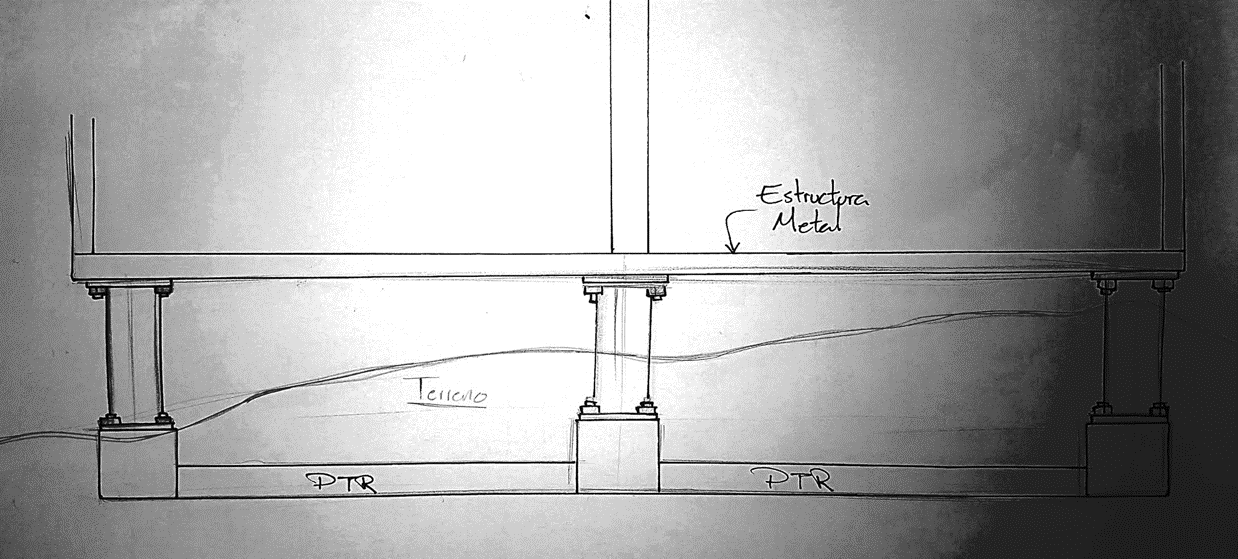 Estructura
Metal
Terreno
PTR
PTR